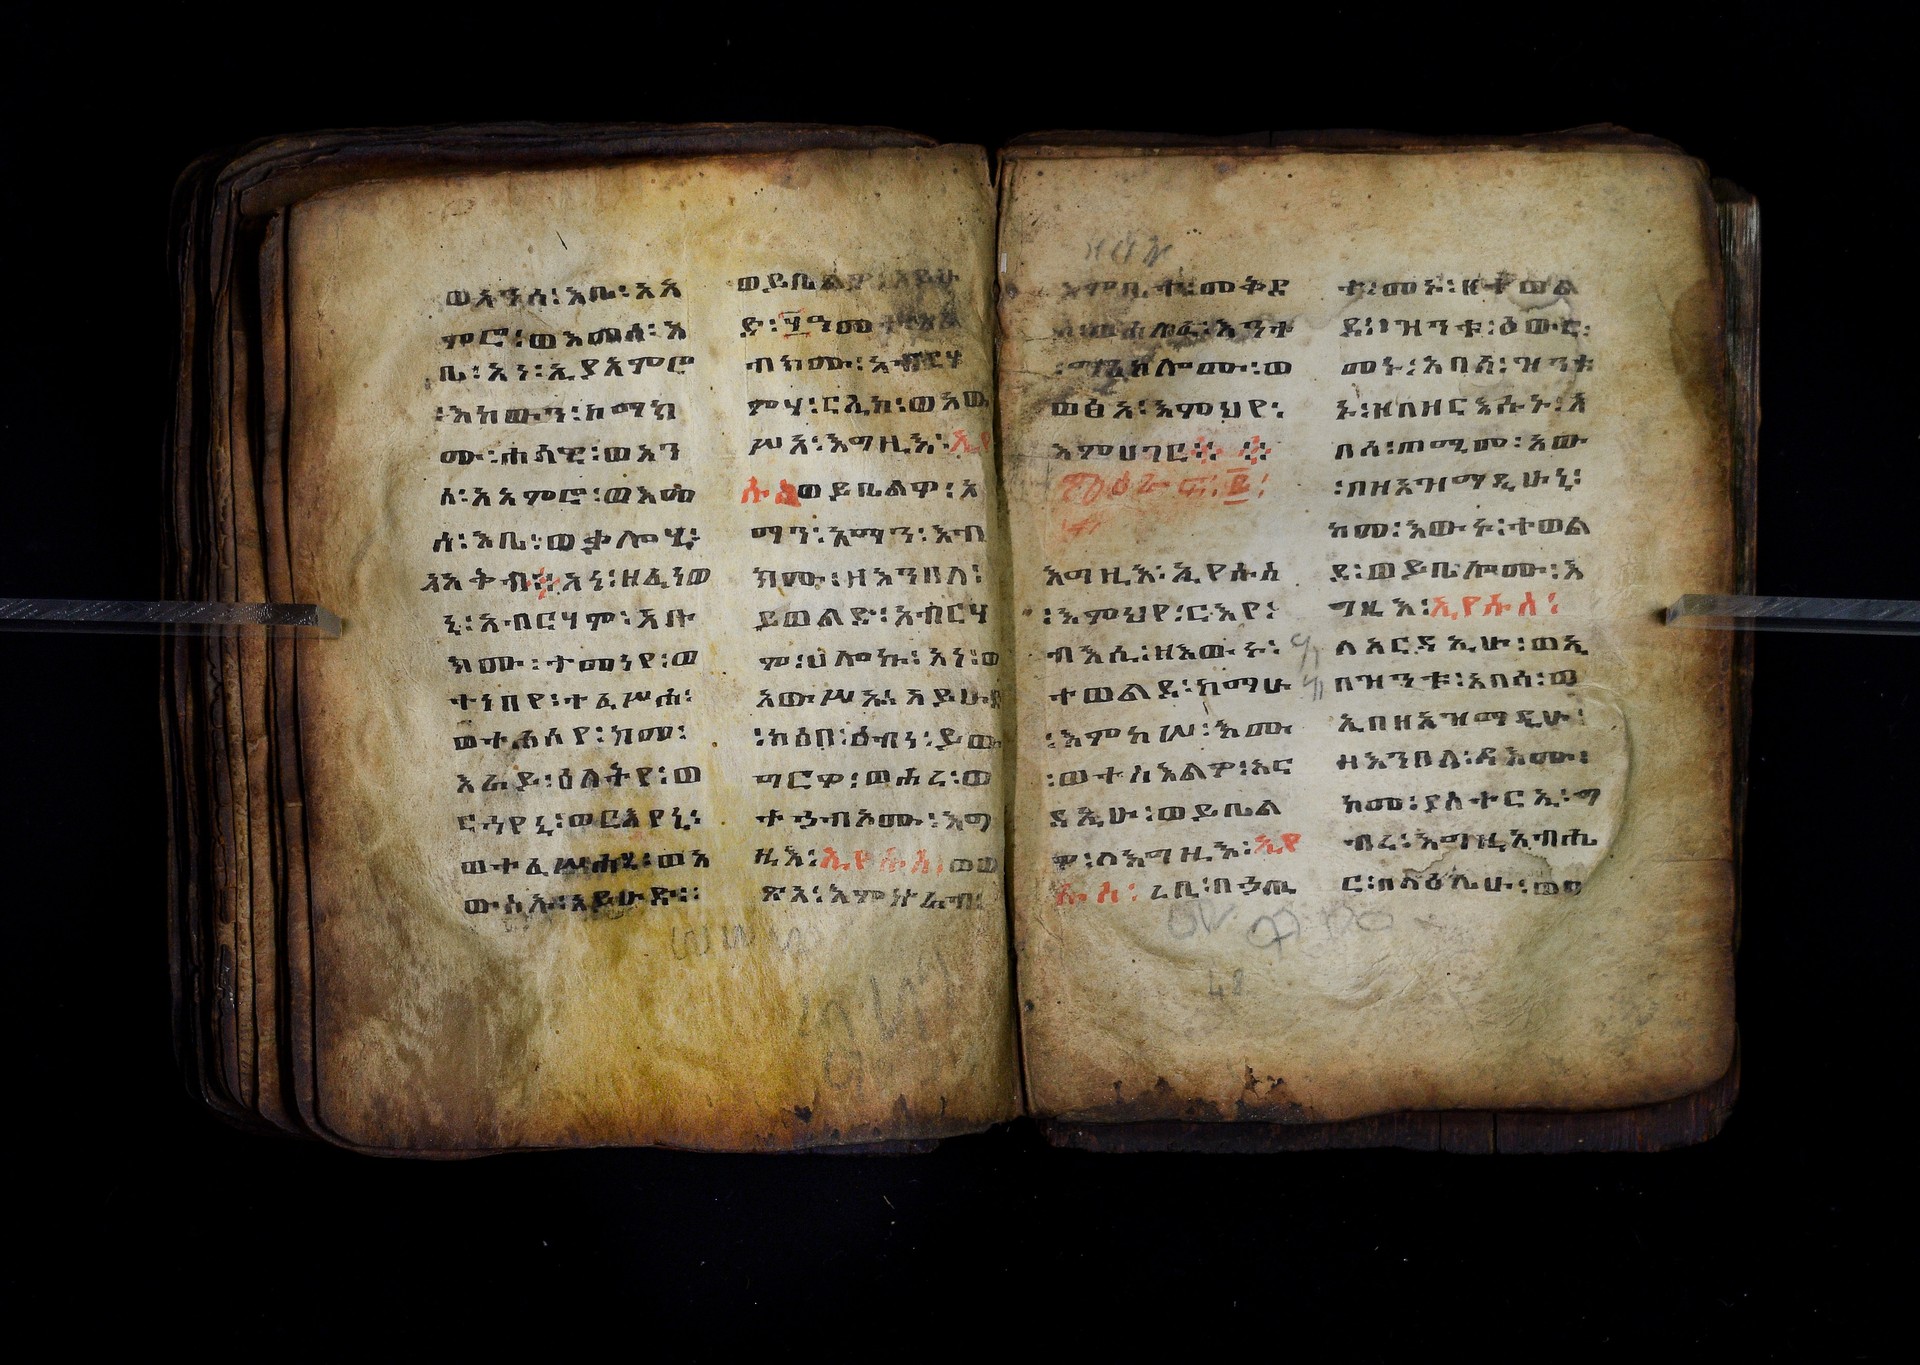 ወአንሰ፡እቤ፡አአ
ምሮ፡ወእመሰ፡እ
ቤ፡አነ፡ኢያአምሮ
፡እከውን፡ከማክ
ሙ፡ሐሳዌ፡ወአን
ሰ፡አአምሮ፡ወእመ
ሰ፡እቤ፡ወቃሎሂ፡
አአቅብ፡፡አኔ፡ዘፈነወ
ኒ፡አብርሃም፡አቡ
ክሙ፡ተመነየ፡ወ
ተነበየ፡ተፈሥሐ፡
ወተሐሰየ፡ከመ፡
እራይ፡ዕለትየ፡ወ
ርኅየኒ፡ወርእየኒ፡
ወተፈሥሐሂ፡ወአ
ውሰኡ፡አይሁድ፡፡
ወይቤልዎ፡አይሁ
ድ፡፶ዓመተ፡
ብከሙ፡አብርሃ
ምሃ፡ርኢከ፡ወአው
ሥአ፡እግዚእ፡ኢየ
ሱስወይቤልዎ፡አ
ማን፡አማን፡እብ
ክሙ፡ዘእንበለ፡
ይወልድ፡አብርሃ
ም፡ህሎኩ፡አነ፡ወ
አውሥኡ፡አይሁድ
፡ከዕበ፡ዕብነ፡ይው
ግርዎ፡ወሐረ፡ወ
ተኃብኦሙ፡እግ
ዚእ፡ኢየሱስ፡ወወ
ጽአ፡እምኵራብ፡
እምቤተ፡መቅደ
እንተ
፡ማእከሎሙ፡ወ
ወፅአ፡እምህየ፡
እምሀገር፡፡
ምዕራፍ፡፪፡
እግዚእ፡ኢየሱስ
፡እምህየ፡ርእየ፡
ብእሲ፡ዘእውሩ፡
ተወልደ፡ከማሁ
፡እምከሠ፡እሙ
፡ወተስእልዎ፡አር
ዳኢሁ፡ወይቤል
ዎ፡ኦእግዚእ፡ኢየ
ሱስ፡ረቢ፡በኃጢ
ቱ፡መኑ፡ዘተወል
ደ፡፡ዝንቱ፡ዕውር፡
መኑ፡አበሰ፡ዝንቱ
ኑ፡ዘበዘርእሱኑ፡አ
በሰ፡ጠሚሙ፡አው
፡በዘአዝማዲሁኒ፡
ከመ፡እውሩ፡ተወል
ደ፡ወይቤሎሙ፡እ
ግዚእ፡ኢየሱስ፡
ለአርዳኢሁ፡ወኢ
በዝንቱ፡አበሰ፡ወ
ኢበዘአዝማዲሁ፡
ዘእንበለ፡ዳእሙ፡
ከመ፡ያስተርኢ፡ግ
ብረ፡እግዚአብሔ
ር፡በላዕሌሁ፡ወ
48